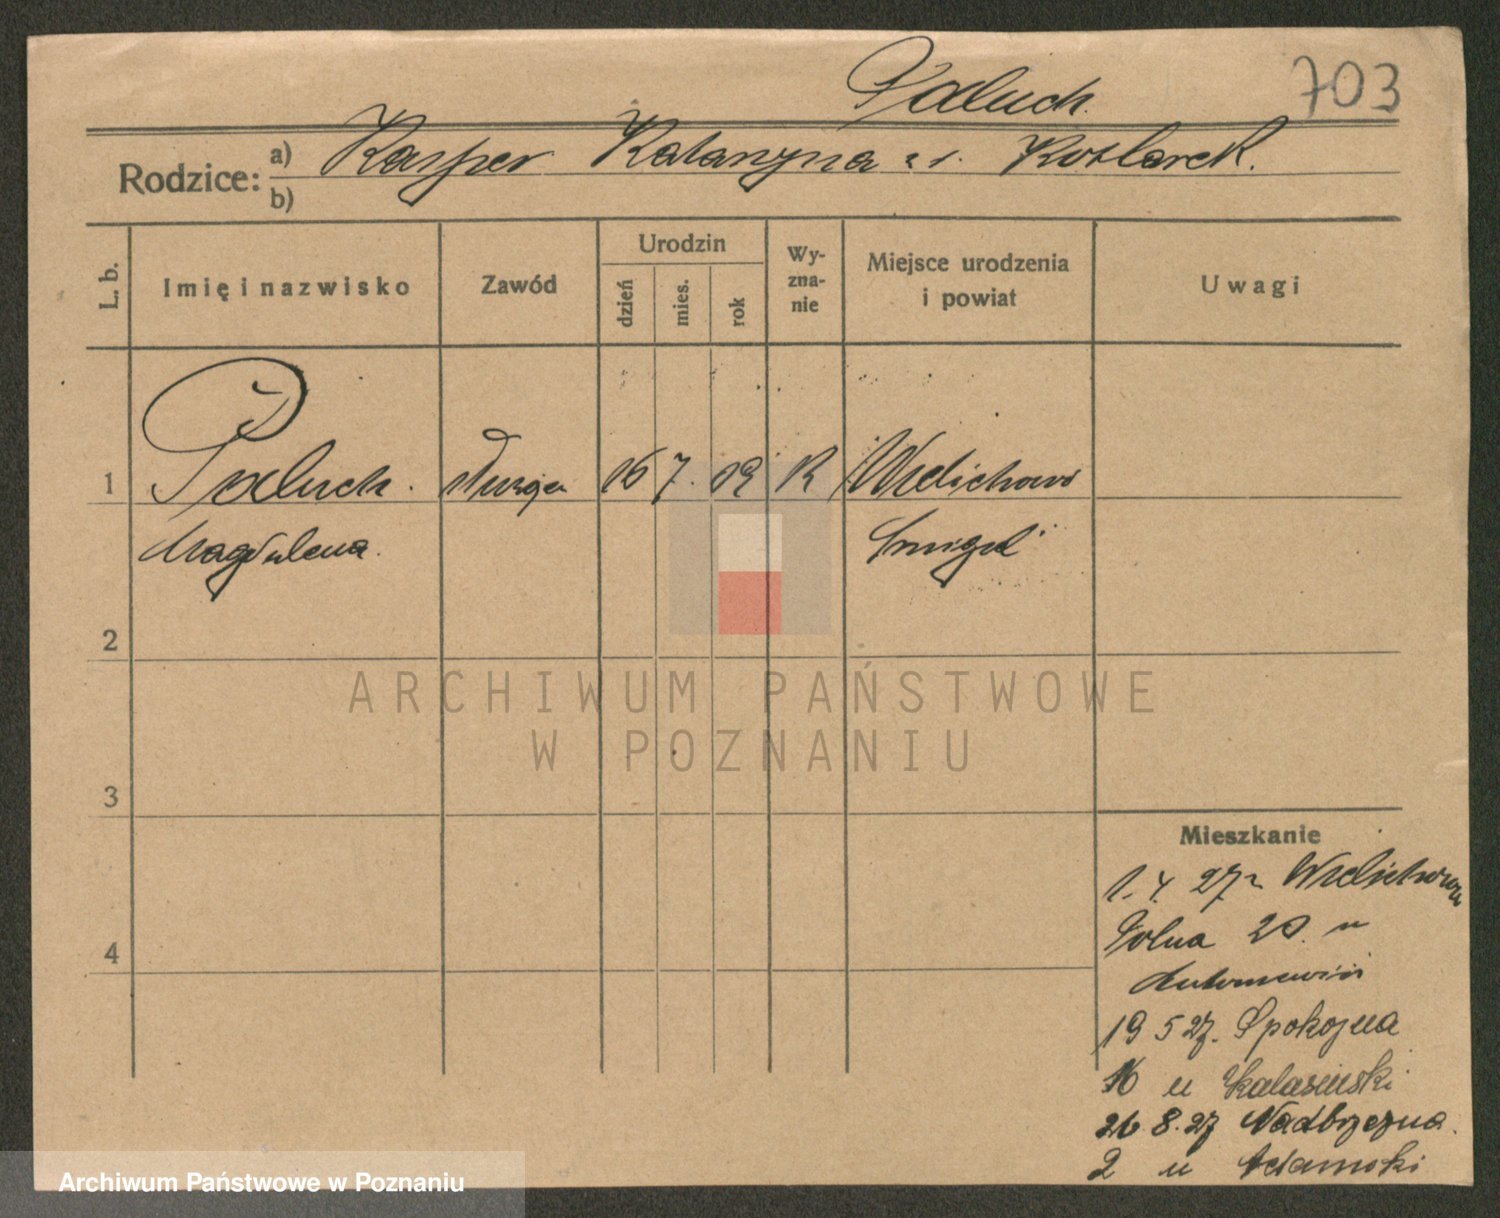 Paluch.
703
Rodzice: a) Kasper Katarzyna z d. Kotlarek.
b)
L. b.
Imię i nazwisko
Zawód
Urodzin
dzień
mies.
rok
Wy-
zna-
nie
Miejsce urodzenia
i powiat
Uwagi
1 Paluch. służąca 16 7. 09 R Wielichowo
Magdalena. Śmigiel
2
3
4
ARCHIWUM PAŃSTWOWE
W POZNANIU
Mieszkanie
1. 4. 27 z Wielichowa
Polna 20. u
19 5 27. Spokojna
16 u Skalasinski
26. 8. 27 Nadbrzeżna.
2 u Adamski
Archiwum Państwowe w Poznaniu